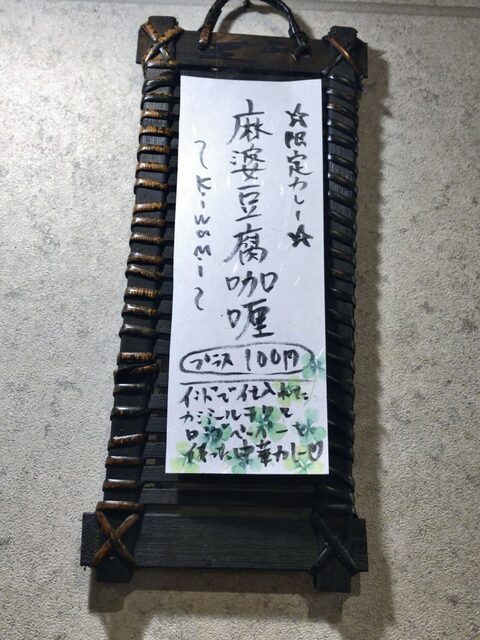 ☆限定カレー☆
麻婆豆腐咖喱
〜Kiwami〜
プラス 100円
インドで仕入れた
カシミールチリと
ロングペッパーを
使った中華カレー♡